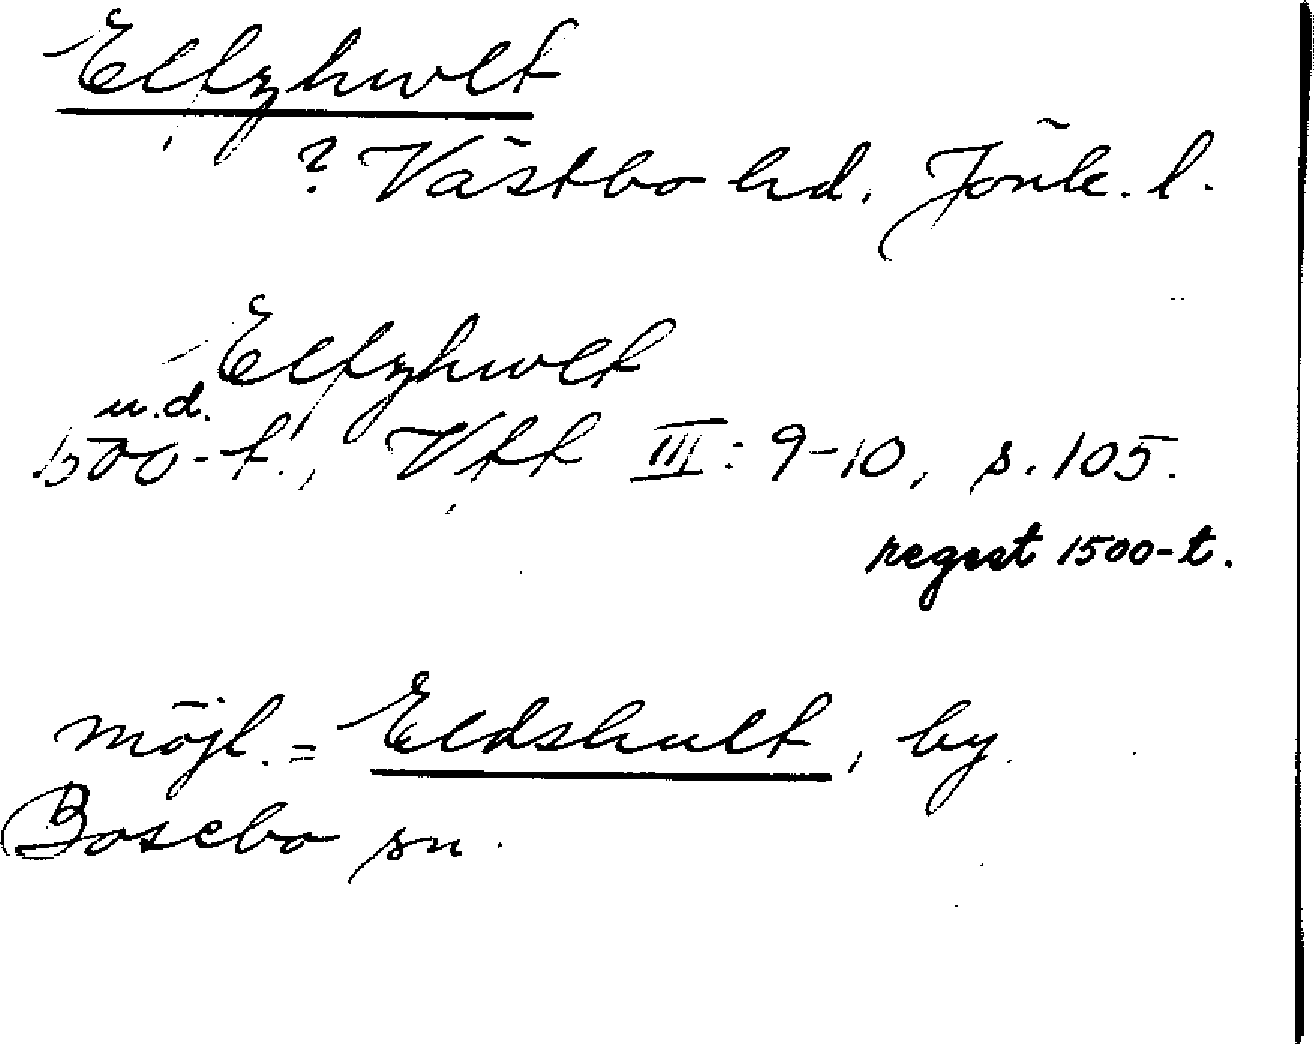 Elfzhwlt
? Västbo hd. Jönk. l.
Elfzhwlt
u.d.
1500-t., Vkk III: 9-10, s. 105.
regest 1500-t.
möjl. = Eldshult, by
Bosebo sn.